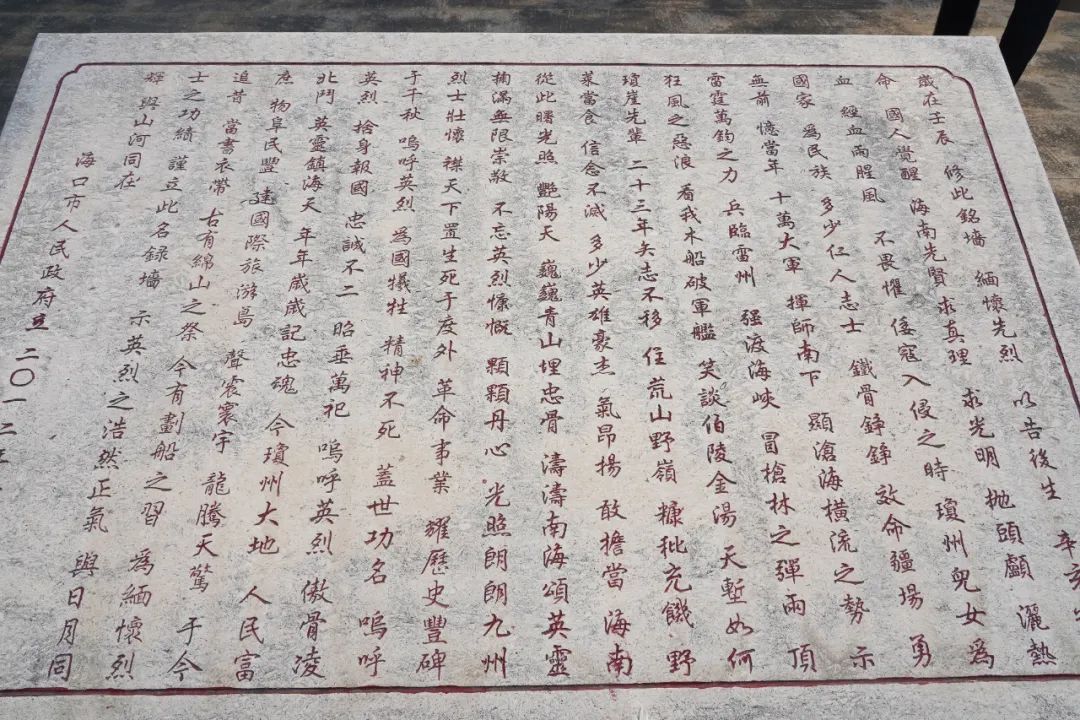 歲在壬辰 修此銘墻 緬懷先烈 以告後生 辛亥
命 國人覺醒 海南先賢 求真理 求光明 抛頭顱 灑熱
血 經血雨腥風 不畏懼 倭寇入侵之時 瓊州兒女爲
國家 爲民族 多少仁人志士 鐵骨錚錚 效命疆場 勇
無前 憶當年 十萬大軍 揮師南下 顯滄海橫流之勢 示
雷霆萬鈞之力 兵臨雷州 强渡海峽 冒槍林之彈雨 頂
狂風之惡浪 看我木船破軍艦 笑談伯陵金湯 天塹如何
瓊崖先輩 二十三年矢志不移 住荒山野嶺 糠秕充饑 野
菜當食 信念不滅 多少英雄豪杰 氣昂揚 敢擔當 海南
從此曙光照 艷陽天 巍巍青山埋忠骨 濤濤南海頌英靈
摘滿無限崇敬 不忘英烈慷慨 顆顆丹心 光照朗朗九州
烈士壯懷 襟天下置生死于度外 革命事業 耀歷史豐碑
于千秋 嗚呼英烈 爲國犧牲 精神不死 蓋世功名 嗚呼
英烈 捨身報國 忠誠不二 昭垂萬祀 嗚呼英烈 傲骨凌
北鬥 英靈鎮海天 年年歲歲記忠魂 今瓊州大地 人民富
庶 物阜民豐 建國際旅游島 聲震寰宇 龍騰天驚 于今
追昔 當書衣帶 古有綿山之祭 今有劃船之習 爲緬懷烈
士之功績 謹立此名録墻 示英烈之浩然正氣 與日月同
輝 與山河同在
海口市人民政府立 二〇一二年